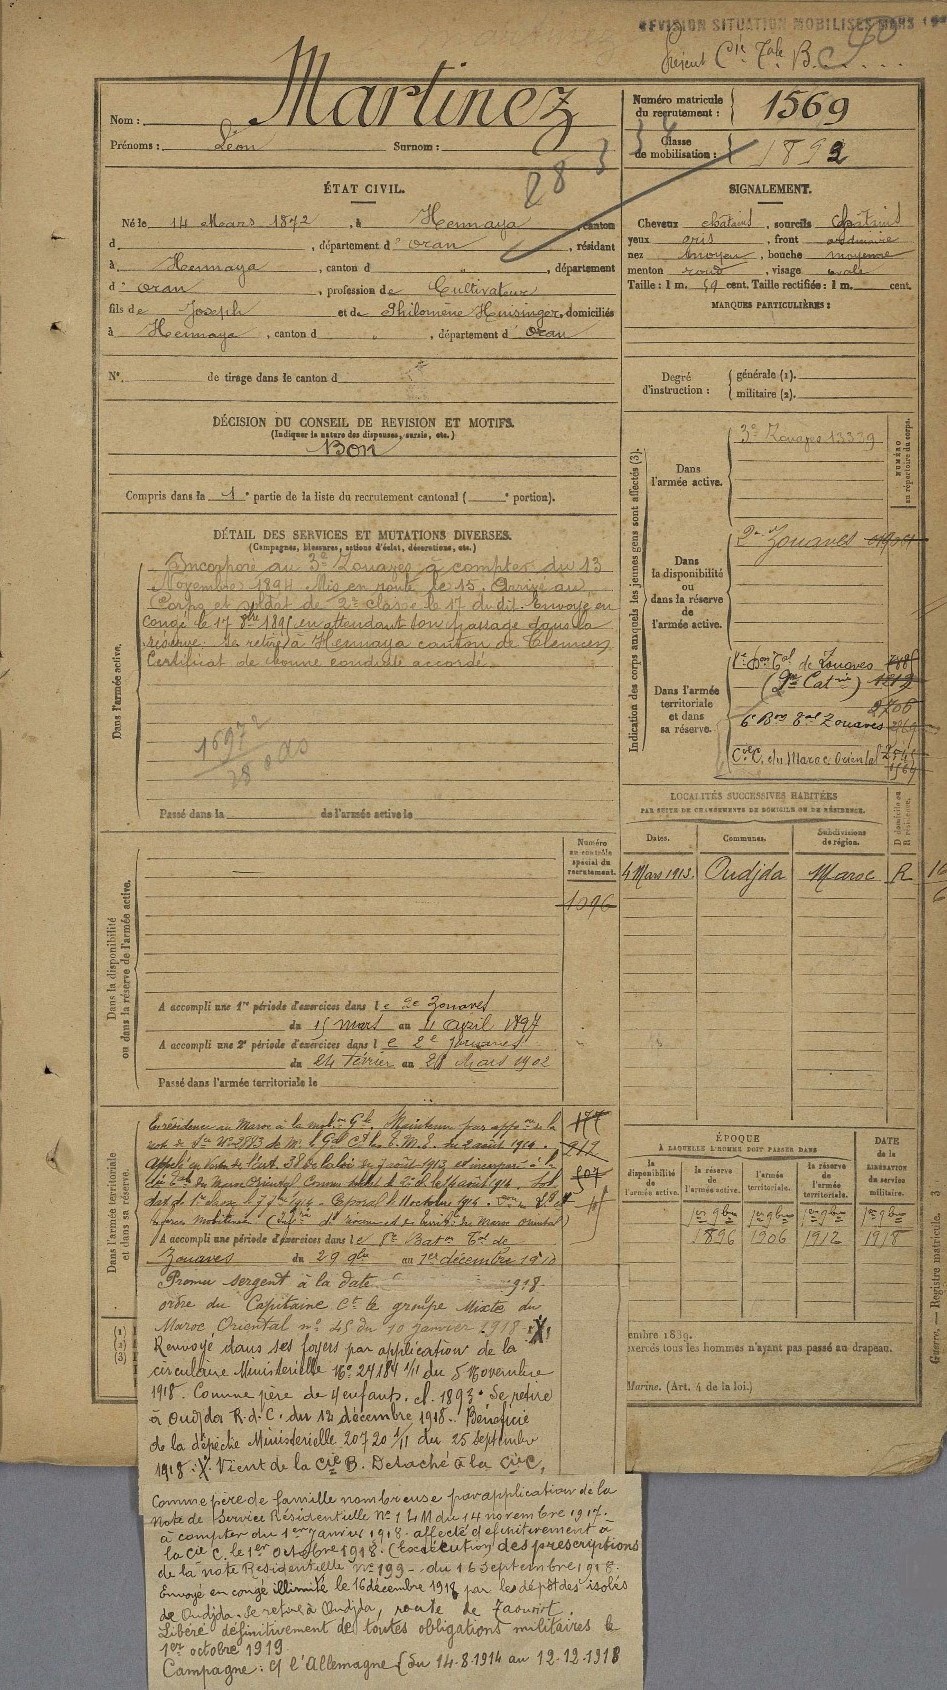 REVISION SITUATION MOBILISES MARS
Présent Cie Tale B C
Nom : Martinez
Prénoms : Léon Surnom :
28
Numéro matricule du recrutement : 1569
Classe de mobilisation : 1892
ÉTAT CIVIL.
Né le 14 Mars 1872, à Hennaya, canton
d , département d'Oran, résidant
à Hennaya, canton d " , département
d'Oran, profession de Cultivateur
fils de Joseph et de Philomène Hunsinger, domiciliés
à Hennaya, canton d " , département d'Oran
N° de tirage dans le canton d
DÉCISION DU CONSEIL DE REVISION ET MOTIFS.
(Indiquer la nature des dispenses, sursis, etc.)
Bon
Compris dans la 1e partie de la liste du recrutement cantonal ( e portion).
SIGNALEMENT.
Cheveux châtains, sourcils châtains
yeux gris, front ordinaire
nez moyen, bouche moyenne
menton rond, visage ovale
Taille : 1 m. 59 cent. Taille rectifiée : 1 m. cent.
MARQUES PARTICULIÈRES :
Degré d'instruction : générale (1).
militaire (2).
DÉTAIL DES SERVICES ET MUTATIONS DIVERSES.
(Campagnes, blessures, actions d'éclat, décorations, etc.)
Dans l'armée active.
Incorporé au 3e Zouaves à compter du 13
Novembre 1894 Mis en route le 15, Arrivé au
Corps et soldat de 2e classe le 17 du dit. Envoyé en
congé le 17 8bre 1895 en attendant son passage dans la
réserve. Se retire à Hennaya canton de Tlemcen
Certificat de bonne conduite accordé.
Passé dans la de l'armée active le
Indication des corps auxquels les jeunes gens sont affectés (3).
NUMÉRO au répertoire du corps.
Dans l'armée active.
3e Zouaves 13339
Dans la disponibilité ou dans la réserve de l'armée active.
2e Zouaves
Dans l'armée territoriale et dans sa réserve.
de Zouaves
1212
2706
6e Bon Tal Zouaves
Cie C. du Maroc Oriental
1567
LOCALITÉS SUCCESSIVES HABITÉES
PAR SUITE DE CHANGEMENTS DE DOMICILE OU DE RÉSIDENCE.
Dates. Communes. Subdivisions de région. D domicile ou R résidence.
4 Mars 1913. Oudjda Maroc R
Dans la disponibilité ou dans la réserve de l'armée active.
Numéro au contrôle spécial du recrutement.
1096
A accompli une 1re période d'exercices dans le 2e Zouaves
du 15 mars au 11 avril 1897
A accompli une 2e période d'exercices dans le 2e Zouaves
du 24 février au 28 Mars 1902
Passé dans l'armée territoriale le
Dans l'armée territoriale et dans sa réserve.
177
217
507
En résidence au Maroc à la mobon Gle. Maintenu par appon de la
note de du 2 août 1914.
Appelé en vertu de l'art. 38 de la loi du 7 août 1913 et incorporé à la
du Maroc Oriental
Caporal le 11 octobre 1914
A accompli une période d'exercices dans le Baton Tal de
Zouaves du 29 9bre au 1er décembre 1910
Promu sergent à la date 1918.
ordre du Capitaine Ct le groupe Mixte du
Maroc Oriental n° 45 du 10 janvier 1918. X
Renvoyé dans ses foyers par application de la
circulaire Ministérielle N° 27184 1/11 du 5 Novembre
1918. Comme père de 4 enfants. cl. 1893. Se retire
à Oudjda R.d.C. du 12 décembre 1918. Bénéficié
de la dépêche Ministérielle 20720 1/11 du 25 Septembre
1918. X. Vient de la Cie B. Détaché à la Cie C,
Comme père de famille nombreuse par application de la
Note de Service Résidentielle N° 121 M du 14 novembre 1917.
à compter du 1er Janvier 1918. affecté définitivement à
la Cie C. le 1er octobre 1918. (Exécution des prescriptions
de la note Résidentielle n° 199 - du 16 septembre 1918.
Envoyé en congé illimité le 16 décembre 1918 par le dépôt des isolés
de Oudjda. Se retire à Oudjda, route de Taourirt.
Libéré définitivement de toutes obligations militaires le
1er octobre 1919
Campagne : c/ l'Allemagne (du 14.8.1914 au 12.12.1918
ÉPOQUE
À LAQUELLE L'HOMME DOIT PASSER DANS
DATE DE LA LIBÉRATION DU SERVICE militaire.
la disponibilité de l'armée active. la réserve de l'armée active. l'armée territoriale. la réserve de l'armée territoriale.
1er 9bre 1896 1er 9bre 1906 1er 9bre 1912 1er 9bre 1918
embre 1889.
exercés tous les hommes n'ayant pas passé au drapeau.
Marine. (Art. 4 de la loi.)
Guerre. — Registre matricule. 3
(1)
(2)
(3)